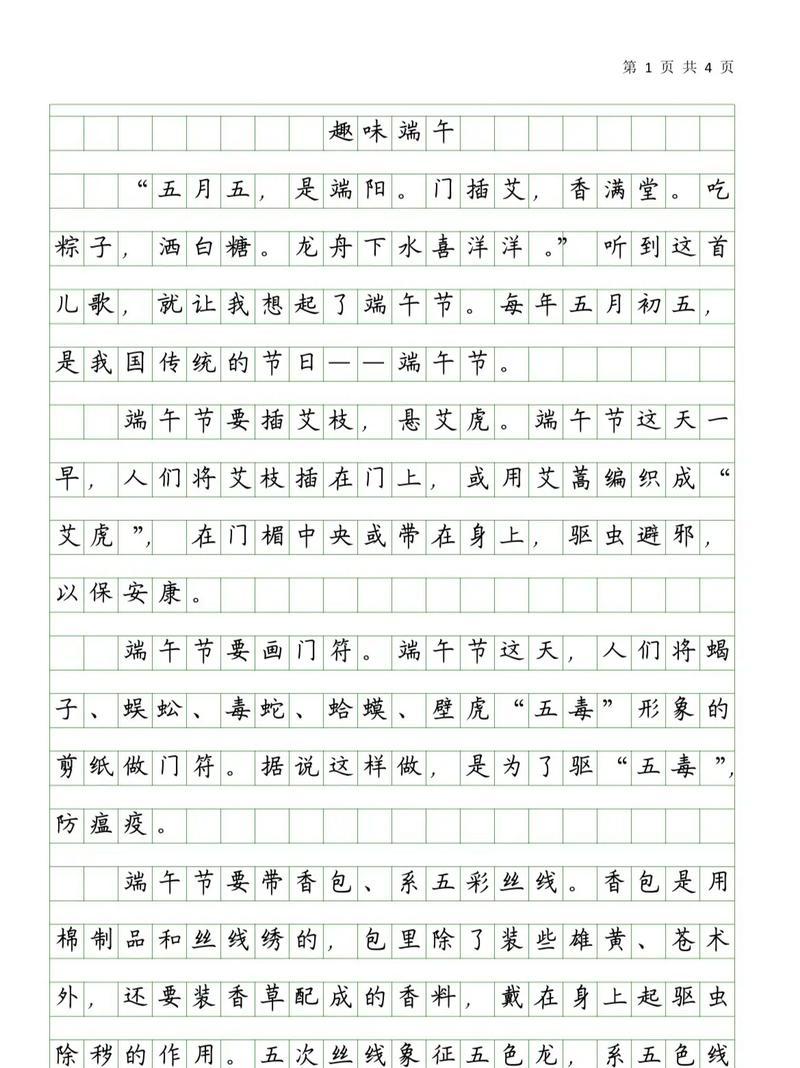 第 1 页 共 4 页
趣味端午
“五月五，是端阳。门插艾，香满堂。吃
粽子，洒白糖。龙舟下水喜洋洋。”听到这首
儿歌，就让我想起了端午节。每年五月初五，
是我国传统的节日——端午节。
端午节要插艾枝，悬艾虎。端午节这天一
早，人们将艾枝插在门上，或用艾蒿编织成“
艾虎”，在门楣中央或带在身上，驱虫避邪，
以保安康。
端午节要画门符。端午节这天，人们将蝎
子、蜈蚣、毒蛇、蛤蟆、壁虎“五毒”形象的
剪纸做门符。据说这样做，是为了驱“五毒”，
防瘟疫。
端午节要带香包、系五彩丝线。香包是用
棉制品和丝线绣的，包里除了装些雄黄、苍术
外，还要装香草配成的香料，戴在身上起驱虫
除秽的作用。五次丝线象征五色龙，系五色线